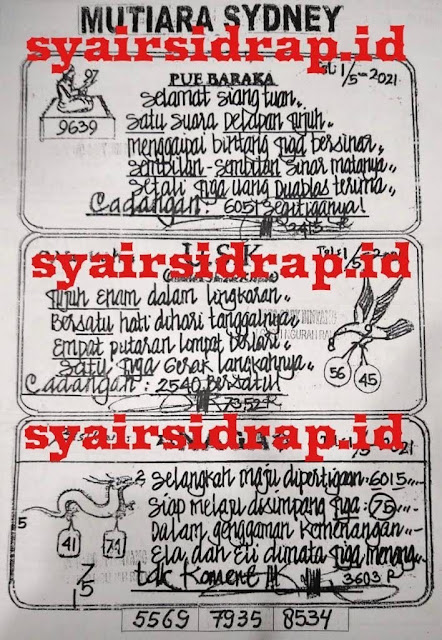 MUTIARA SYDNEY
syairsidrap.id
PUE BARAKA
Tgl: 1/5-2021
97
9639
Selamat siang tuan..
Satu suara Delapan Tujuh..
Menggapai bintang Tiga bersinar..
Sembilan-Sembilan Sinar matanya..
Setali Tiga uang Duablas terima..
Cadangan: 6051 Segitiganya!
2415 R
syairsidrap.id
Tujuh Enam dalam lingkaran..
Bersatu hati dihari tanggalnya..
Empat putaran lompat berlari..
Satu Tiga Gerak langkahnya..
Cadangan: 2540 Bersatu!
7352 R
56
45
syairsidrap.id
5-2021
Selangkah maju dipertigaan: 6015..
Siap melaju disimpang Tiga: 75..
Dalam genggaman Kemenangan..
Ela dan Eli dimata Tiga
5
2
41
74
7
5
tdk Koment !!!
3603 R
5569 7935 8534